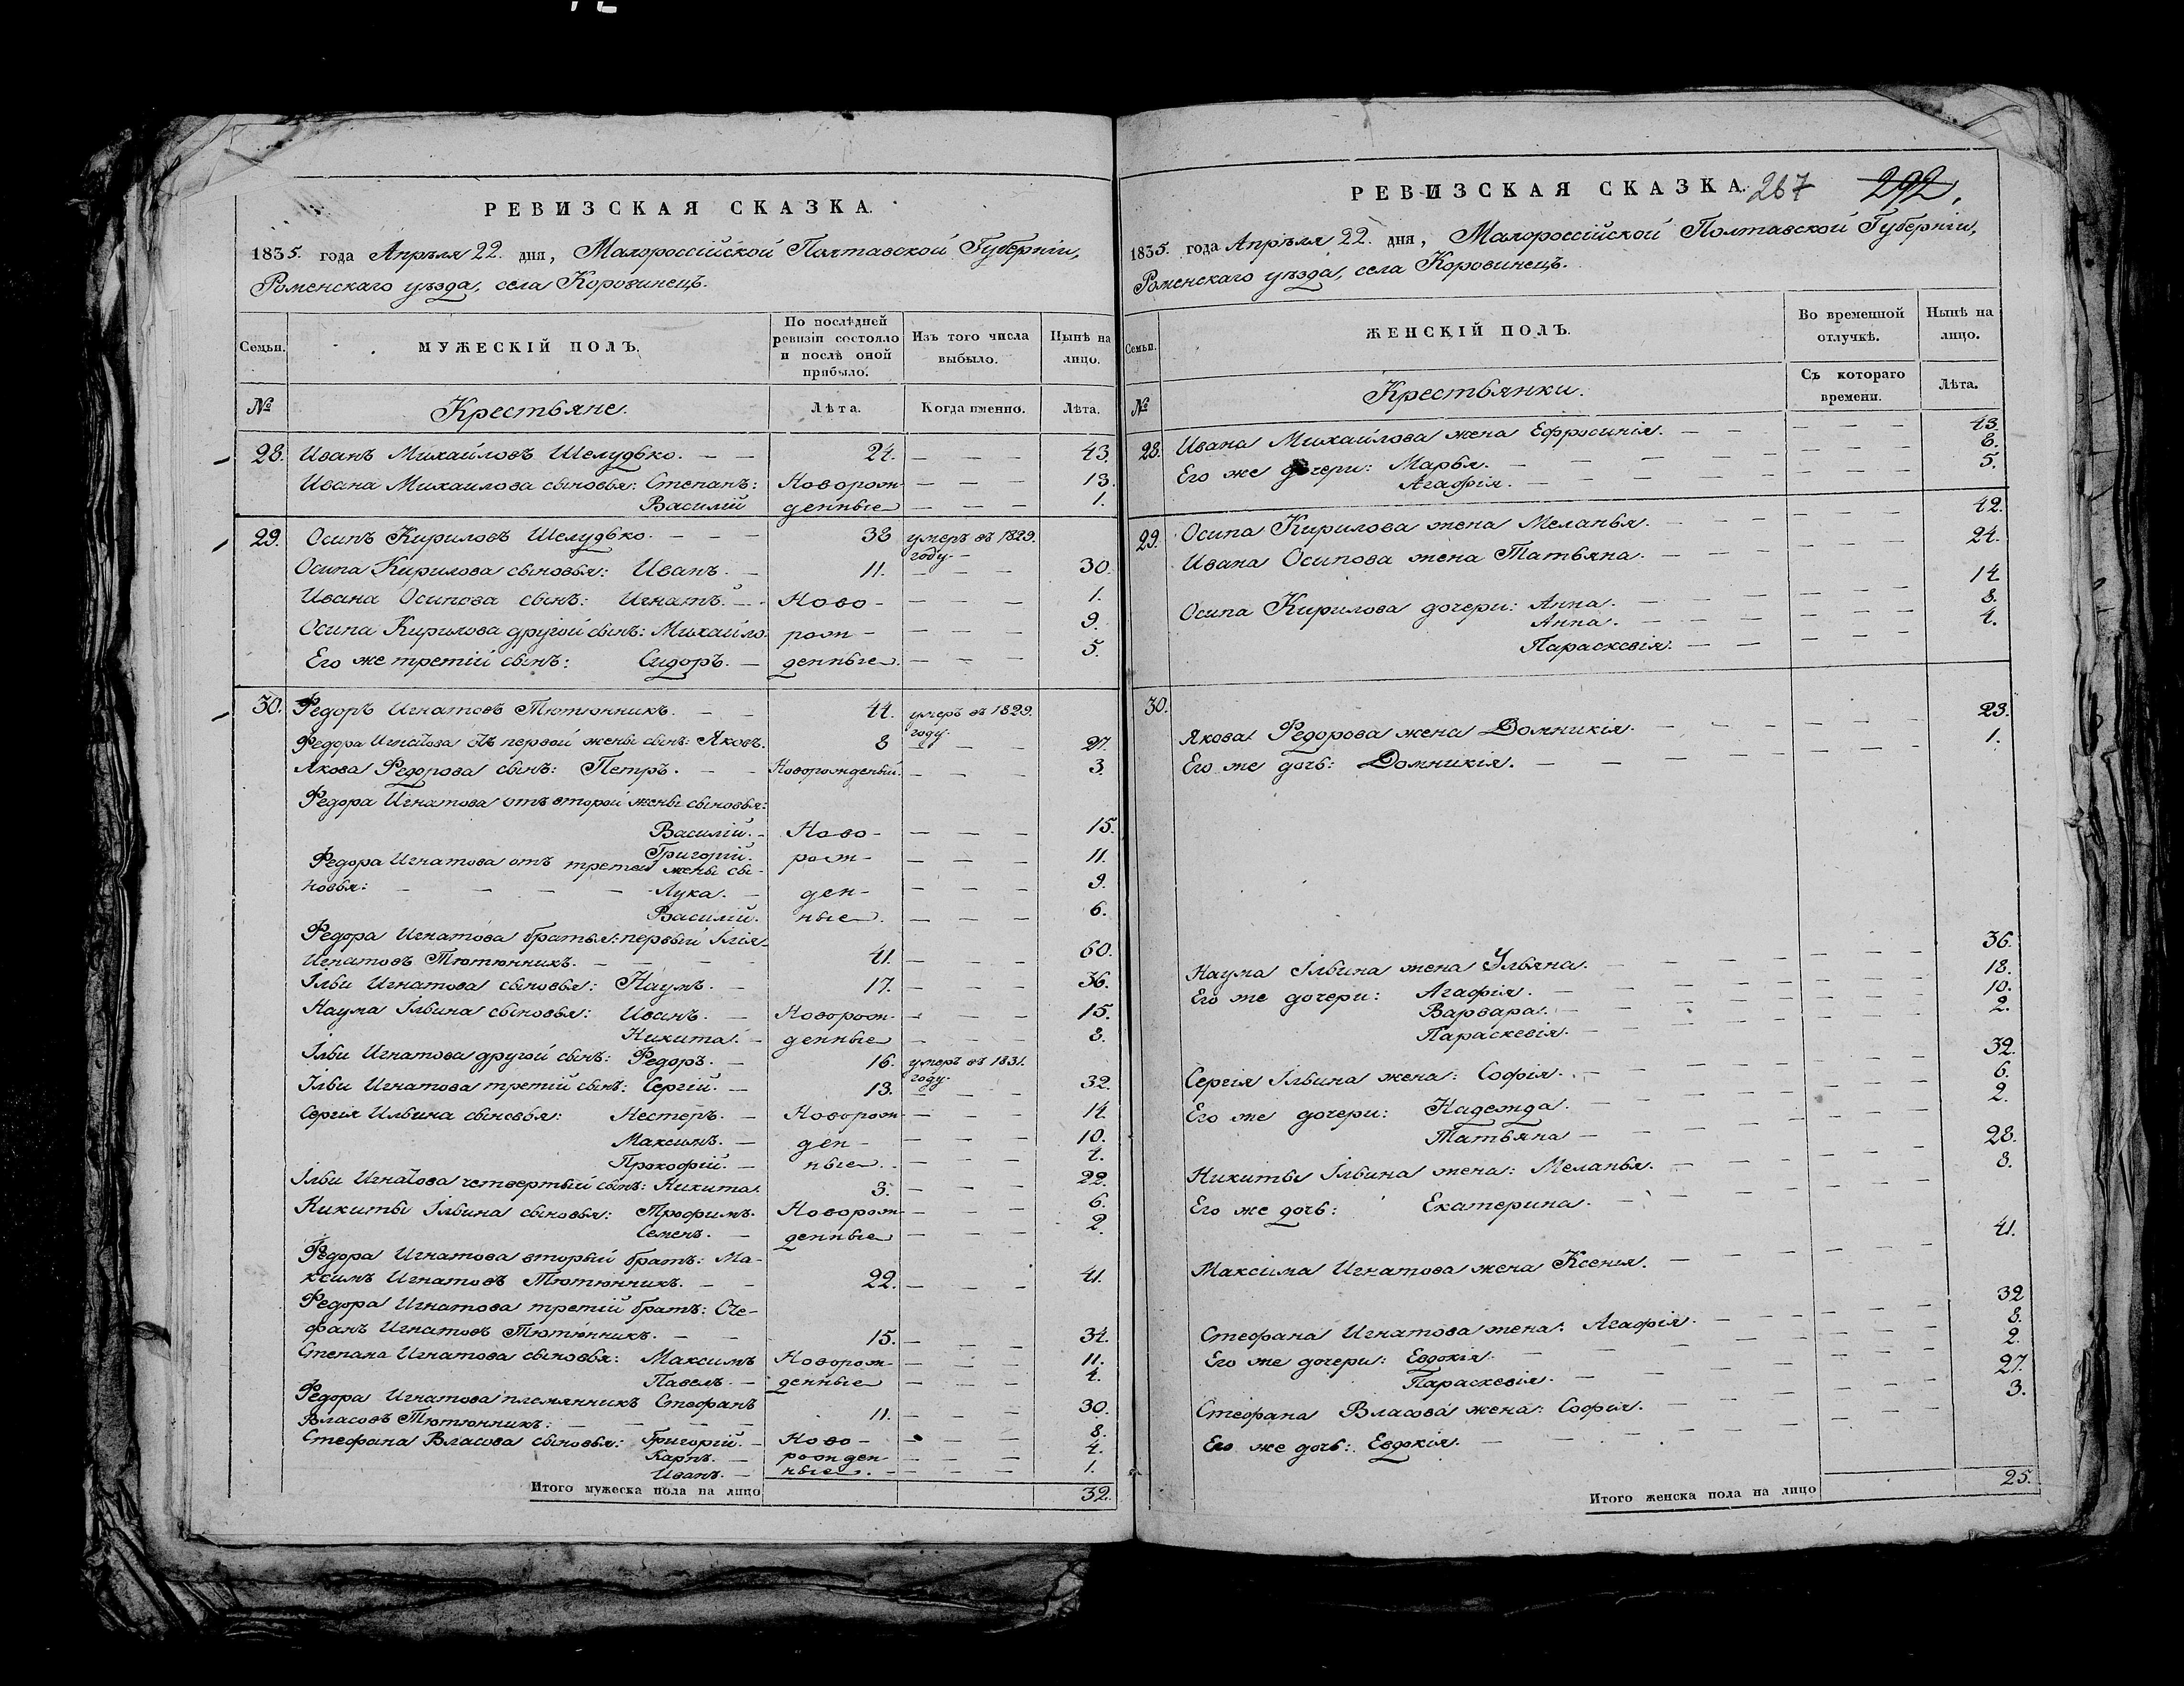 РЕВИЗСКАЯ СКАЗКА.
1835. года Апрѣля 22. дня, Малороссійской Полтавской Губерніи,
Роменскаго уѣзда, села Коровинецъ.
Семьи. МУЖЕСКІЙ ПОЛЪ. По послѣдней ревизіи состояло и послѣ оной прибыло. Изъ того числа выбыло. Нынѣ на лицо.
№ Крестьяне. Лѣта. Когда именно. Лѣта.
28. Иванъ Михайловъ Шелудько. — — 24. — — — 43.
Ивана Михайлова сыновья: Степанъ: Новорож- — — — 13.
Василій денные — — — 1.
29. Осипъ Кириловъ Шелудько. — — — 38 умеръ въ 1829.
году. —
Осипа Кирилова сыновья: Иванъ. — 11. — — — 30.
Ивана Осипова сынъ: Игнатъ. — Ново- — — — 1.
Осипа Кирилова другой сынъ: Михайло. рож- — — — 9.
Его же третій сынъ: Сидоръ. — денные. — — — 5.
30. Федоръ Игнатовъ Тютюнникъ. — — 44. умеръ въ 1829.
году.
Федора Игнатова отъ первой жены сынъ: Яковъ. 8 — — — 27.
Якова Федорова сынъ: Петръ. — — Новорожденый. — — — 3.
Федора Игнатова отъ второй жены сыновья:
Василій. — Ново- — — — 15.
Григорій. рож- — — — 11.
Федора Игнатова отъ третей жены сы-
новья: — — — — Лука. — ден- — — — 9.
Василій. ные. — — — 6.
Федора Игнатова братья: первый Ілія
Игнатовъ Тютюнникъ. — — — 41. — — — 60.
Ільи Игнатова сыновья: Наумъ. — 17. — — — 36.
Наума Ільина сыновья: Иванъ. — Новорож- — — — 15.
Никита. — денные — — — 8.
Ільи Игнатова другой сынъ: Федоръ. — 16. умеръ въ 1831.
году.
Ільи Игнатова третій сынъ: Сергій. — 13. — — — 32.
Сергія Ильина сыновья: Нестеръ. — Новорож- — — — 14.
Максимъ. — ден- — — — 10.
Прокофій. — ные. — — — 4.
Ільи Игнатова четвертый сынъ: Никита. 3. — — — 22.
Никиты Ільина сыновья: Трофимъ. Новорож- — — — 6.
Семенъ. — денные — — — 2.
Федора Игнатова вторый братъ: Ма-
ксимъ Игнатовъ Тютюнникъ. — — 22. — — — 41.
Федора Игнатова третій братъ: Сте-
фанъ Игнатовъ Тютюнникъ. — — 15. — — — 34.
Степана Игнатова сыновья: Максимъ Новорож- — — — 11.
Павелъ. — денные — — — 4.
Федора Игнатова племянникъ Стефанъ
Власовъ Тютюнникъ: — — — — 11. — — — 30.
Стефана Власова сыновья: Григорій. — Ново- — — — 8.
Карпъ. — рожден- — — — 4.
Иванъ. — ные. — — — 1.
Итого мужеска пола на лицо 32.
РЕВИЗСКАЯ СКАЗКА. 267 292.
1835. года Апрѣля 22. дня, Малороссійской Полтавской Губерніи,
Роменскаго уѣзда, села Коровинецъ.
Семьи. ЖЕНСКІЙ ПОЛЪ. Во временной отлучкѣ. Нынѣ на лицо.
№ Крестьянки. Съ котораго времени. Лѣта.
28. Ивана Михайлова жена Ефросинія. — — — — — 43.
Его же дочери: Марья. — — — — 8.
Агафія. — — — — 5.
29. Осипа Кирилова жена Меланья. — — — — — 42.
Ивана Осипова жена Татьяна. — — — — — 24.
Осипа Кирилова дочери: Анна. — — — — — 14.
Анна. — — — — — 8.
Параскевія. — — — — — 4.
30. Якова Федорова жена Домникія. — — — — — 23.
Его же дочь: Домникія. — — — — — 1.
Наума Ільина жена Ульяна. — — — — — 36.
Его же дочери: Агафія. — — — — — 18.
Варвара. — — — — — 10.
Параскевія. — — — — — 2.
Сергія Ільина жена: Софія. — — — — — 32.
Его же дочери: Надежда. — — — — — 6.
Татьяна — — — — — 2.
Никиты Ільина жена: Меланья. — — — — — 28.
Его же дочь: Екатерина. — — — — — 8.
Максима Игнатова жена Ксенія. — — — — — 41.
Стефана Игнатова жена: Агафія. — — — — — 32
Его же дочери: Евдокія. — — — — — 8.
Параскевія. — — — — — 2.
Стефана Власова жена: Софія. — — — — — 27.
Его же дочь: Евдокія. — — — — — 3.
Итого женска пола на лицо 25.